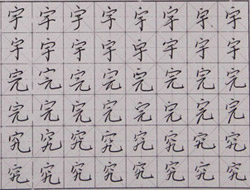 宇宇宇宇宇宇宇宇
宇宇宇宇宇宇宇宇
完完完完完完完完
完完完完完完完完
究究究究究究究究
究究究究究究究究